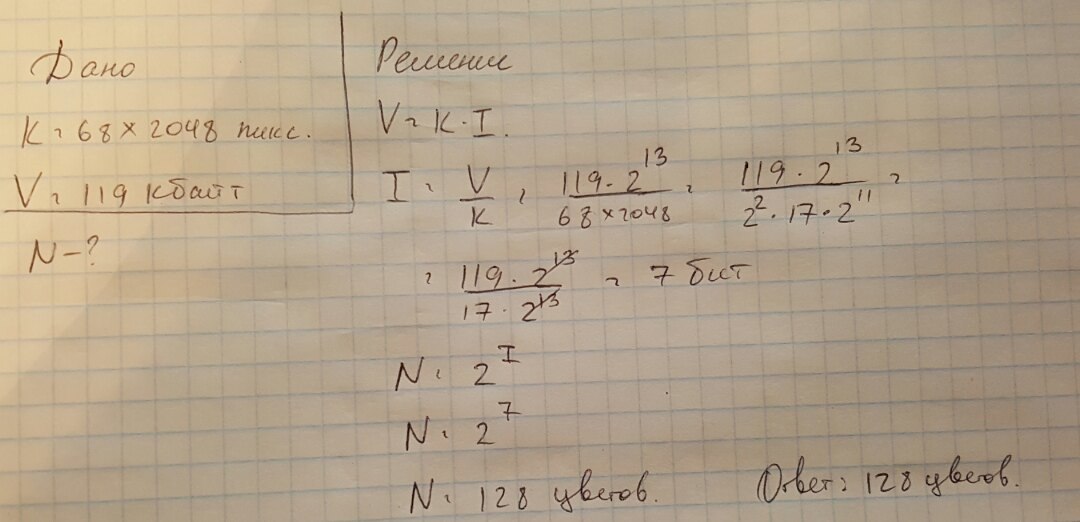 Дано
K = 68 × 2048 пикс.
V = 119 Кбайт
N - ?
Решение
V = K · I.
I = V/K = 119 · 2^13 / 68 × 2048 = 119 · 2^13 / 2^2 · 17 · 2^11 =
= 119 · 2^13 / 17 · 2^13 = 7 бит
N = 2^I
N = 2^7
N = 128 цветов.
Ответ: 128 цветов.